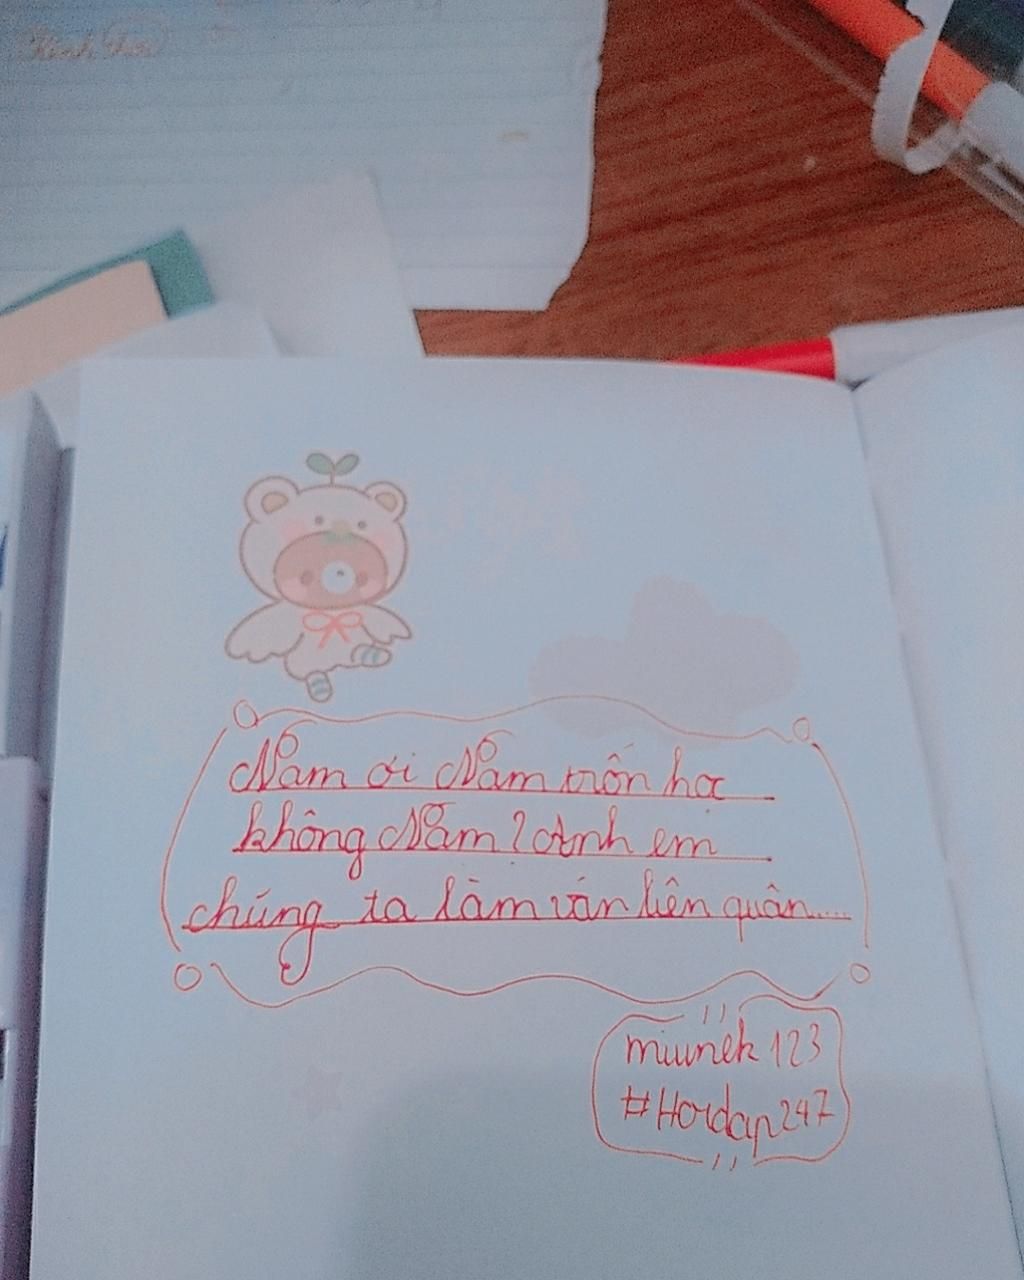 Năm ơi Năm trốn học
không Năm? Anh em
chúng ta làm ván liên quân....
miunek 123
#Hoidap247